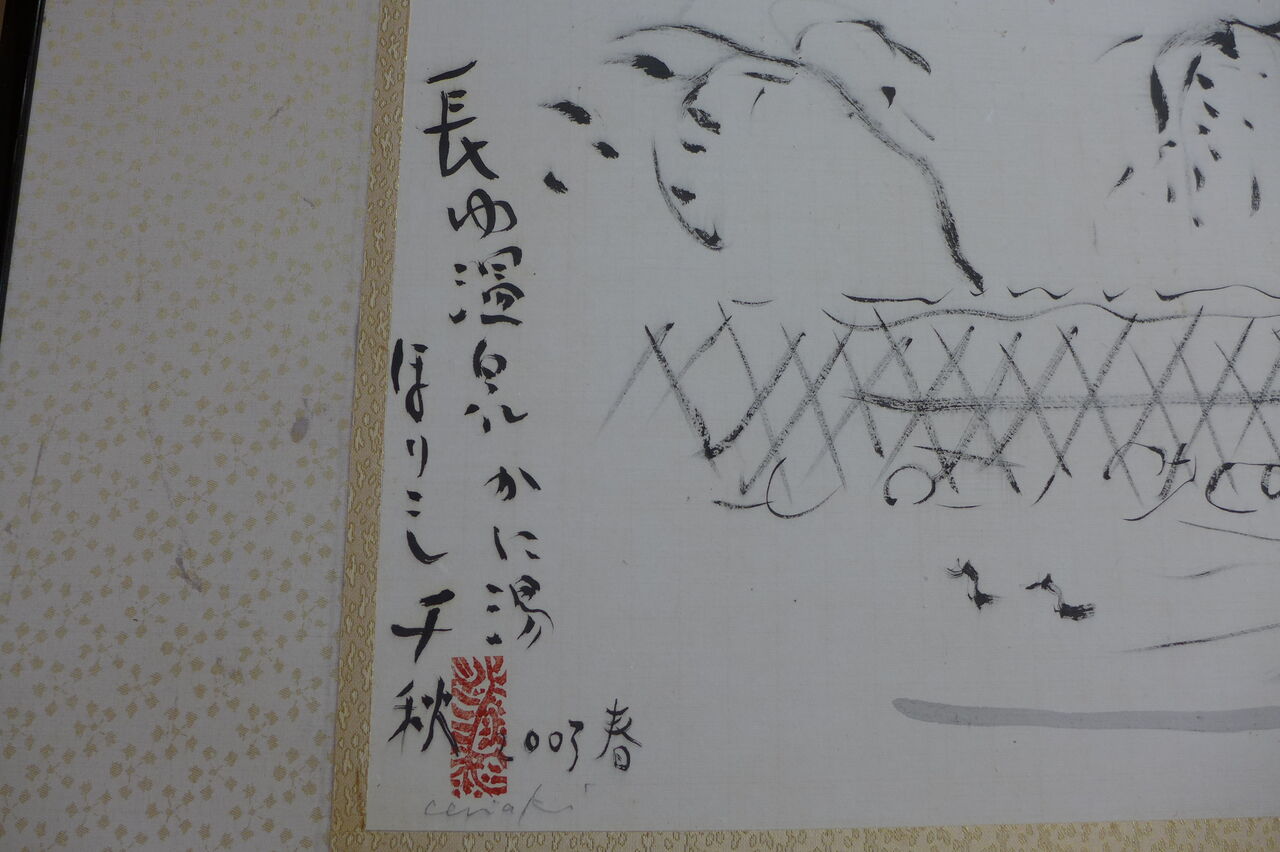 長ゆ温泉かに湯
ほりこし千秋
003 春